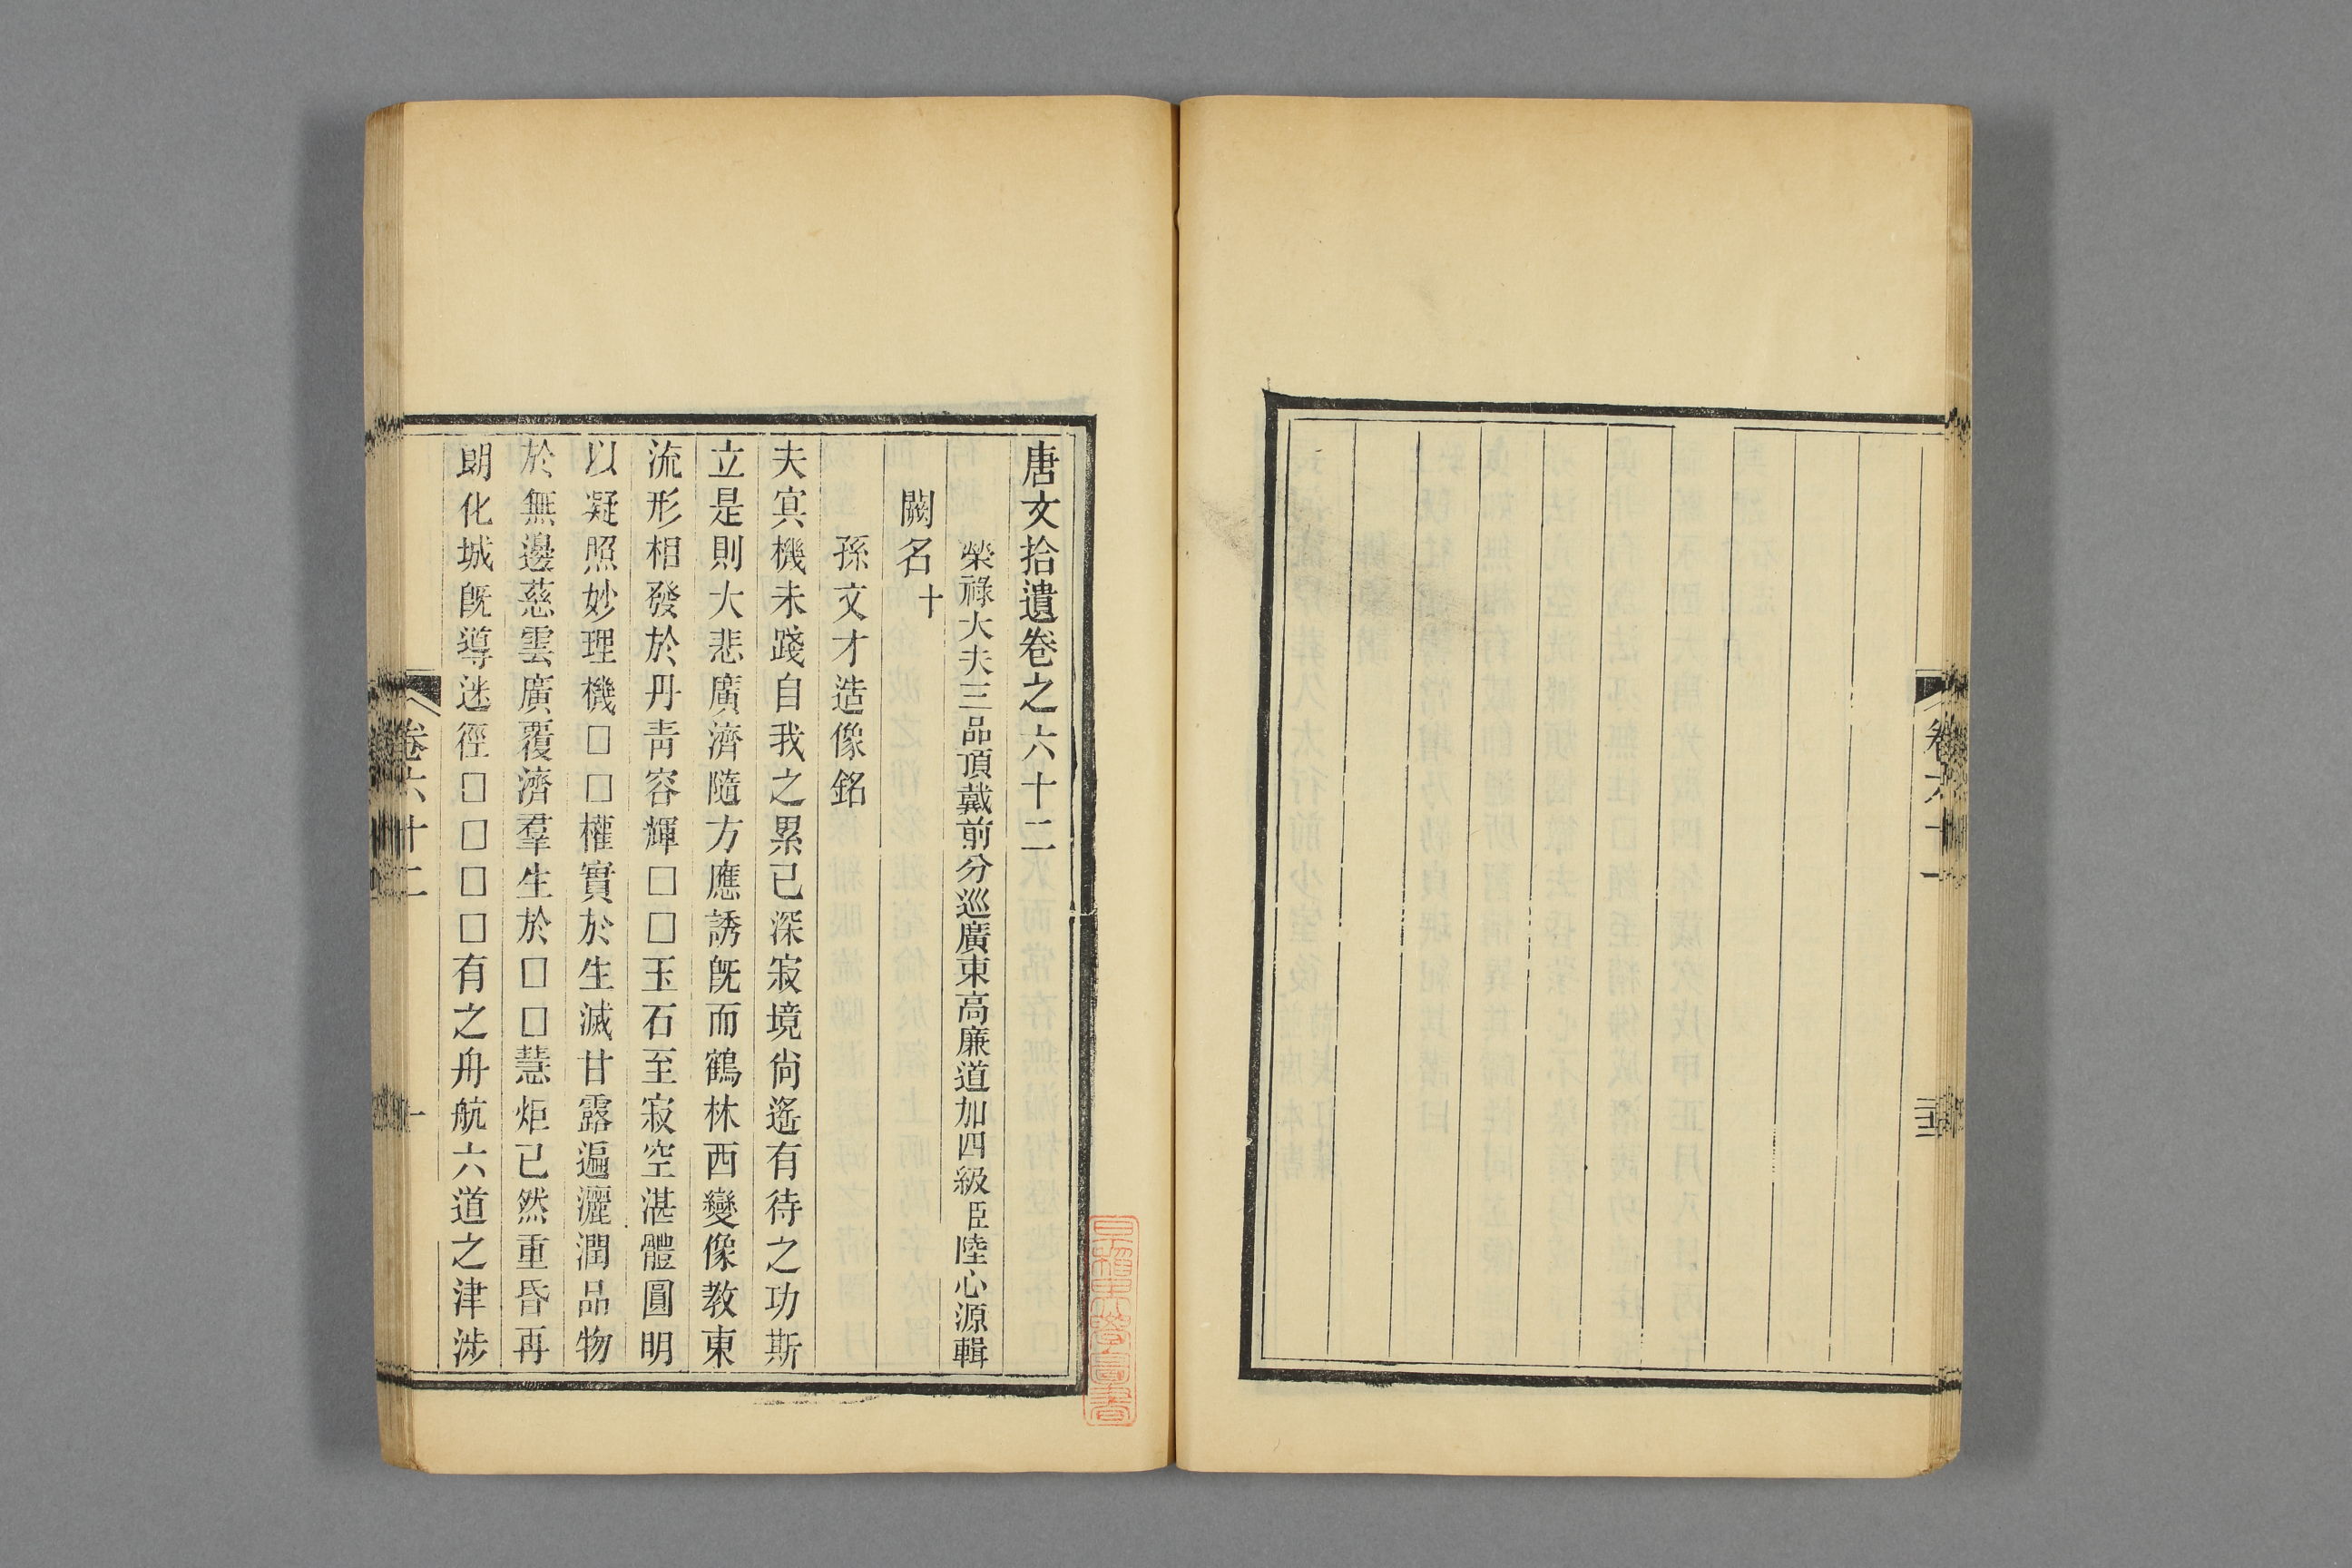 卷六十一
唐文拾遺卷之六十二
榮祿大夫三品頂戴前分巡廣東高廉道加四級臣陸心源輯
闕名十
孫文才造像銘
夫冥機未踐自我之累已深寂境尙遙有待之功斯
立是則大悲廣濟隨方應誘旣而鶴林西變像教東
流形相發於丹靑容輝□□玉石至寂空湛體圓明
以凝照妙理機□□權實於生滅甘露遍灑潤品物
於無邊慈雲廣覆濟羣生於□□慧炬已然重昏再
朗化城旣導迷徑□□□□有之舟航六道之津涉
卷六十二
一